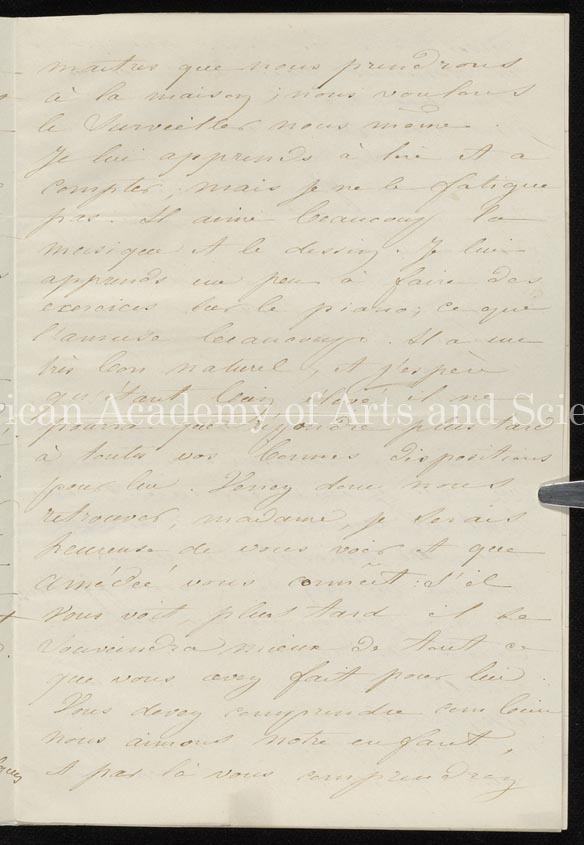 maitres que nous prendrons
à la maison ; nous voulons
le surveiller nous même.
Je lui apprends à lire et à
compter ; mais je ne le fatigue
pas. Il aime beaucoup la
musique et le dessin. Je lui
apprends un peu à faire des
exercices sur le piano ; ce que
l'amuse beaucoup. Il a un
très bon naturel, et j'espère
qu'étant bien élevé, il ne
American Academy of Arts and Scie
pourra que répondre plus tard
à toutes vos bonnes dispositions
pour lui. Venez donc nous
retrouver, madame, je serais
heureuse de vous voir et que
Amédée vous connût : s'il
vous voit, plus tard il se
souviendra mieux de tout ce
que vous avez fait pour lui.
Vous devez comprendre combien
nous aimons notre enfant,
et par là vous comprendrez